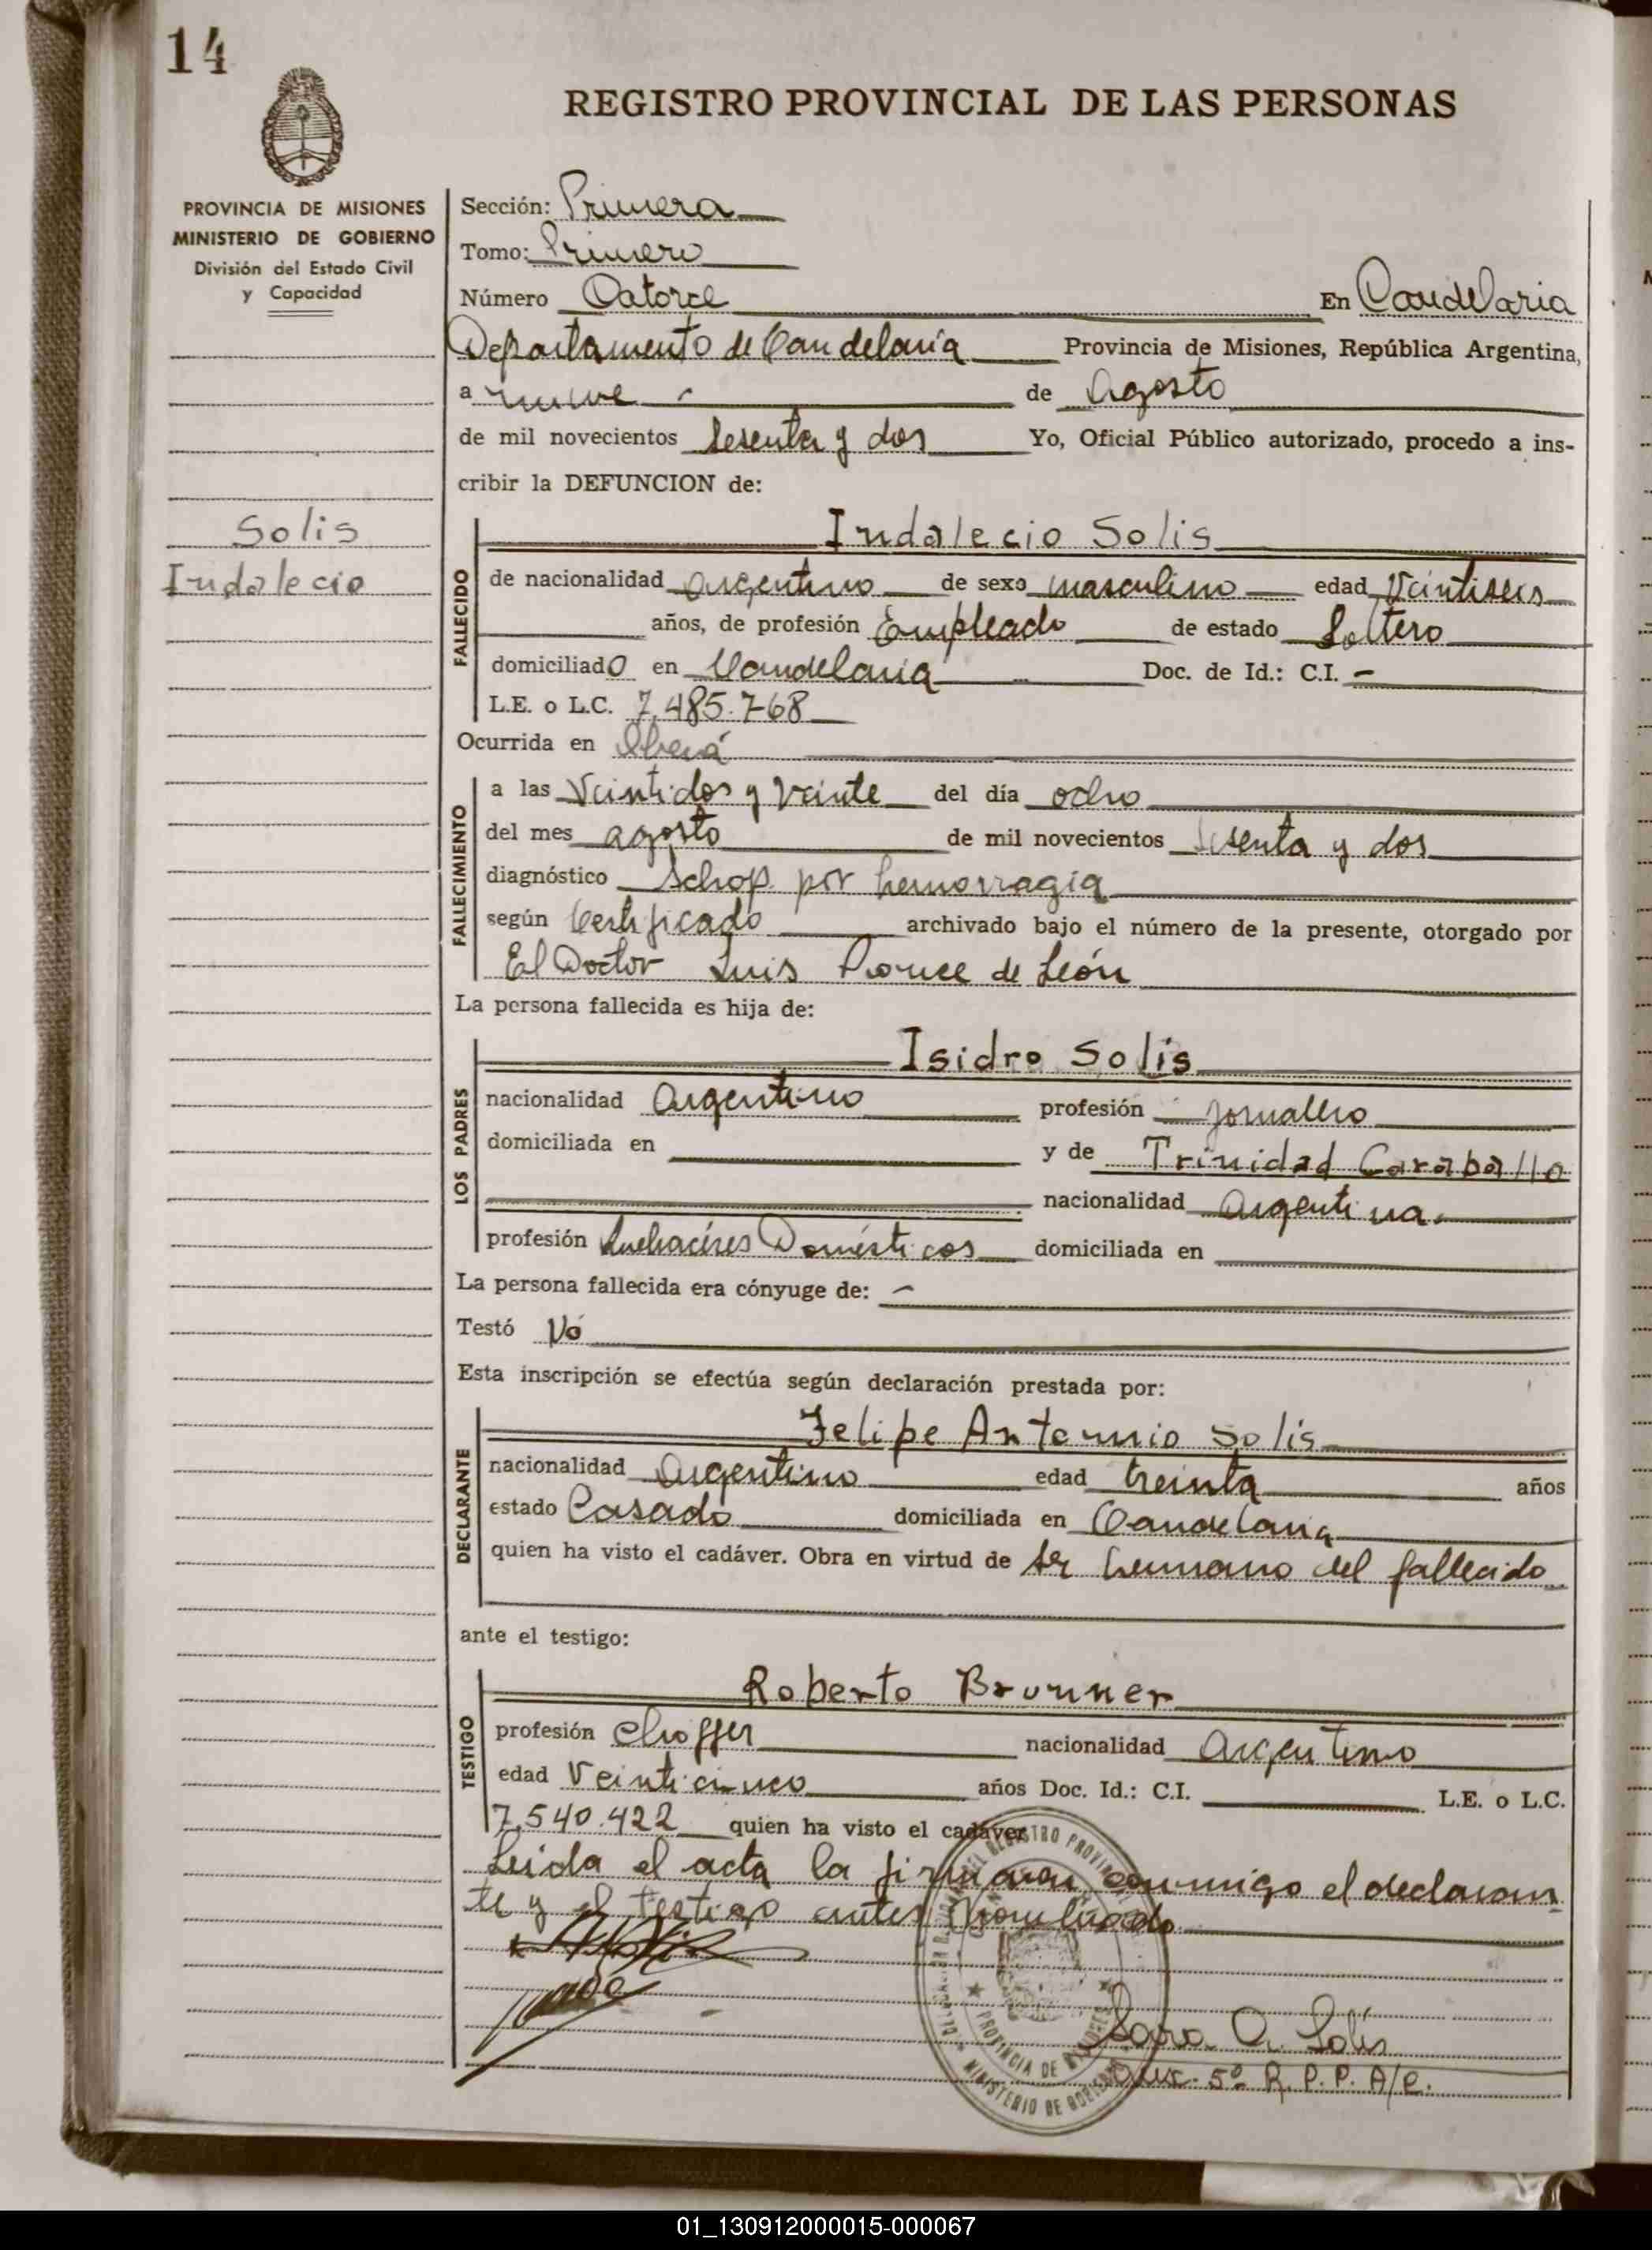 14
REGISTRO PROVINCIAL DE LAS PERSONAS
PROVINCIA DE MISIONES
MINISTERIO DE GOBIERNO
División del Estado Civil
y Capacidad
Solis
Indalecio
Sección: Primera
Tomo: Primero
Número Catorce En Candelaria
Departamento de Candelaria Provincia de Misiones, República Argentina,
a nueve de Agosto
de mil novecientos sesenta y dos Yo, Oficial Público autorizado, procedo a ins-
cribir la DEFUNCION de:
FALLECIDO
Indalecio Solis
de nacionalidad Argentino de sexo masculino edad Veintiseis
años, de profesión Empleado de estado Soltero
domiciliado en Candelaria Doc. de Id.: C.I. -
L.E. o L.C. 7.485.768
Ocurrida en Oberá
FALLECIMIENTO
a las Veintidos y veinte del día ocho
del mes agosto de mil novecientos sesenta y dos
diagnóstico Schop por hemorragia
según Certificado archivado bajo el número de la presente, otorgado por
El Doctor Luis Ponce de León
La persona fallecida es hija de:
LOS PADRES
Isidro Solis
nacionalidad Argentino profesión Jornalero
domiciliada en y de Trinidad Caraballo
nacionalidad Argentina
profesión Quehaceres Domésticos domiciliada en
La persona fallecida era cónyuge de: -
Testó Nó
Esta inscripción se efectúa según declaración prestada por:
DECLARANTE
Felipe Antonio Solis
nacionalidad Argentino edad treinta años
estado Casado domiciliada en Candelaria
quien ha visto el cadáver. Obra en virtud de ser hermano del fallecido
ante el testigo:
TESTIGO
Roberto Brunner
profesión Choffer nacionalidad Argentino
edad Veinticinco años Doc. Id.: C.I. L.E. o L.C.
7.540.422 quien ha visto el cadáver
Leida el acta la firmaran conmigo el declaran
te y el testigo antes nombrado
PROVINCIA DE MISIONES
MINISTERIO DE GOBIERNO
Sara A. Solís
Aux. 5º R. P. P. A/C.
01_130912000015-000067